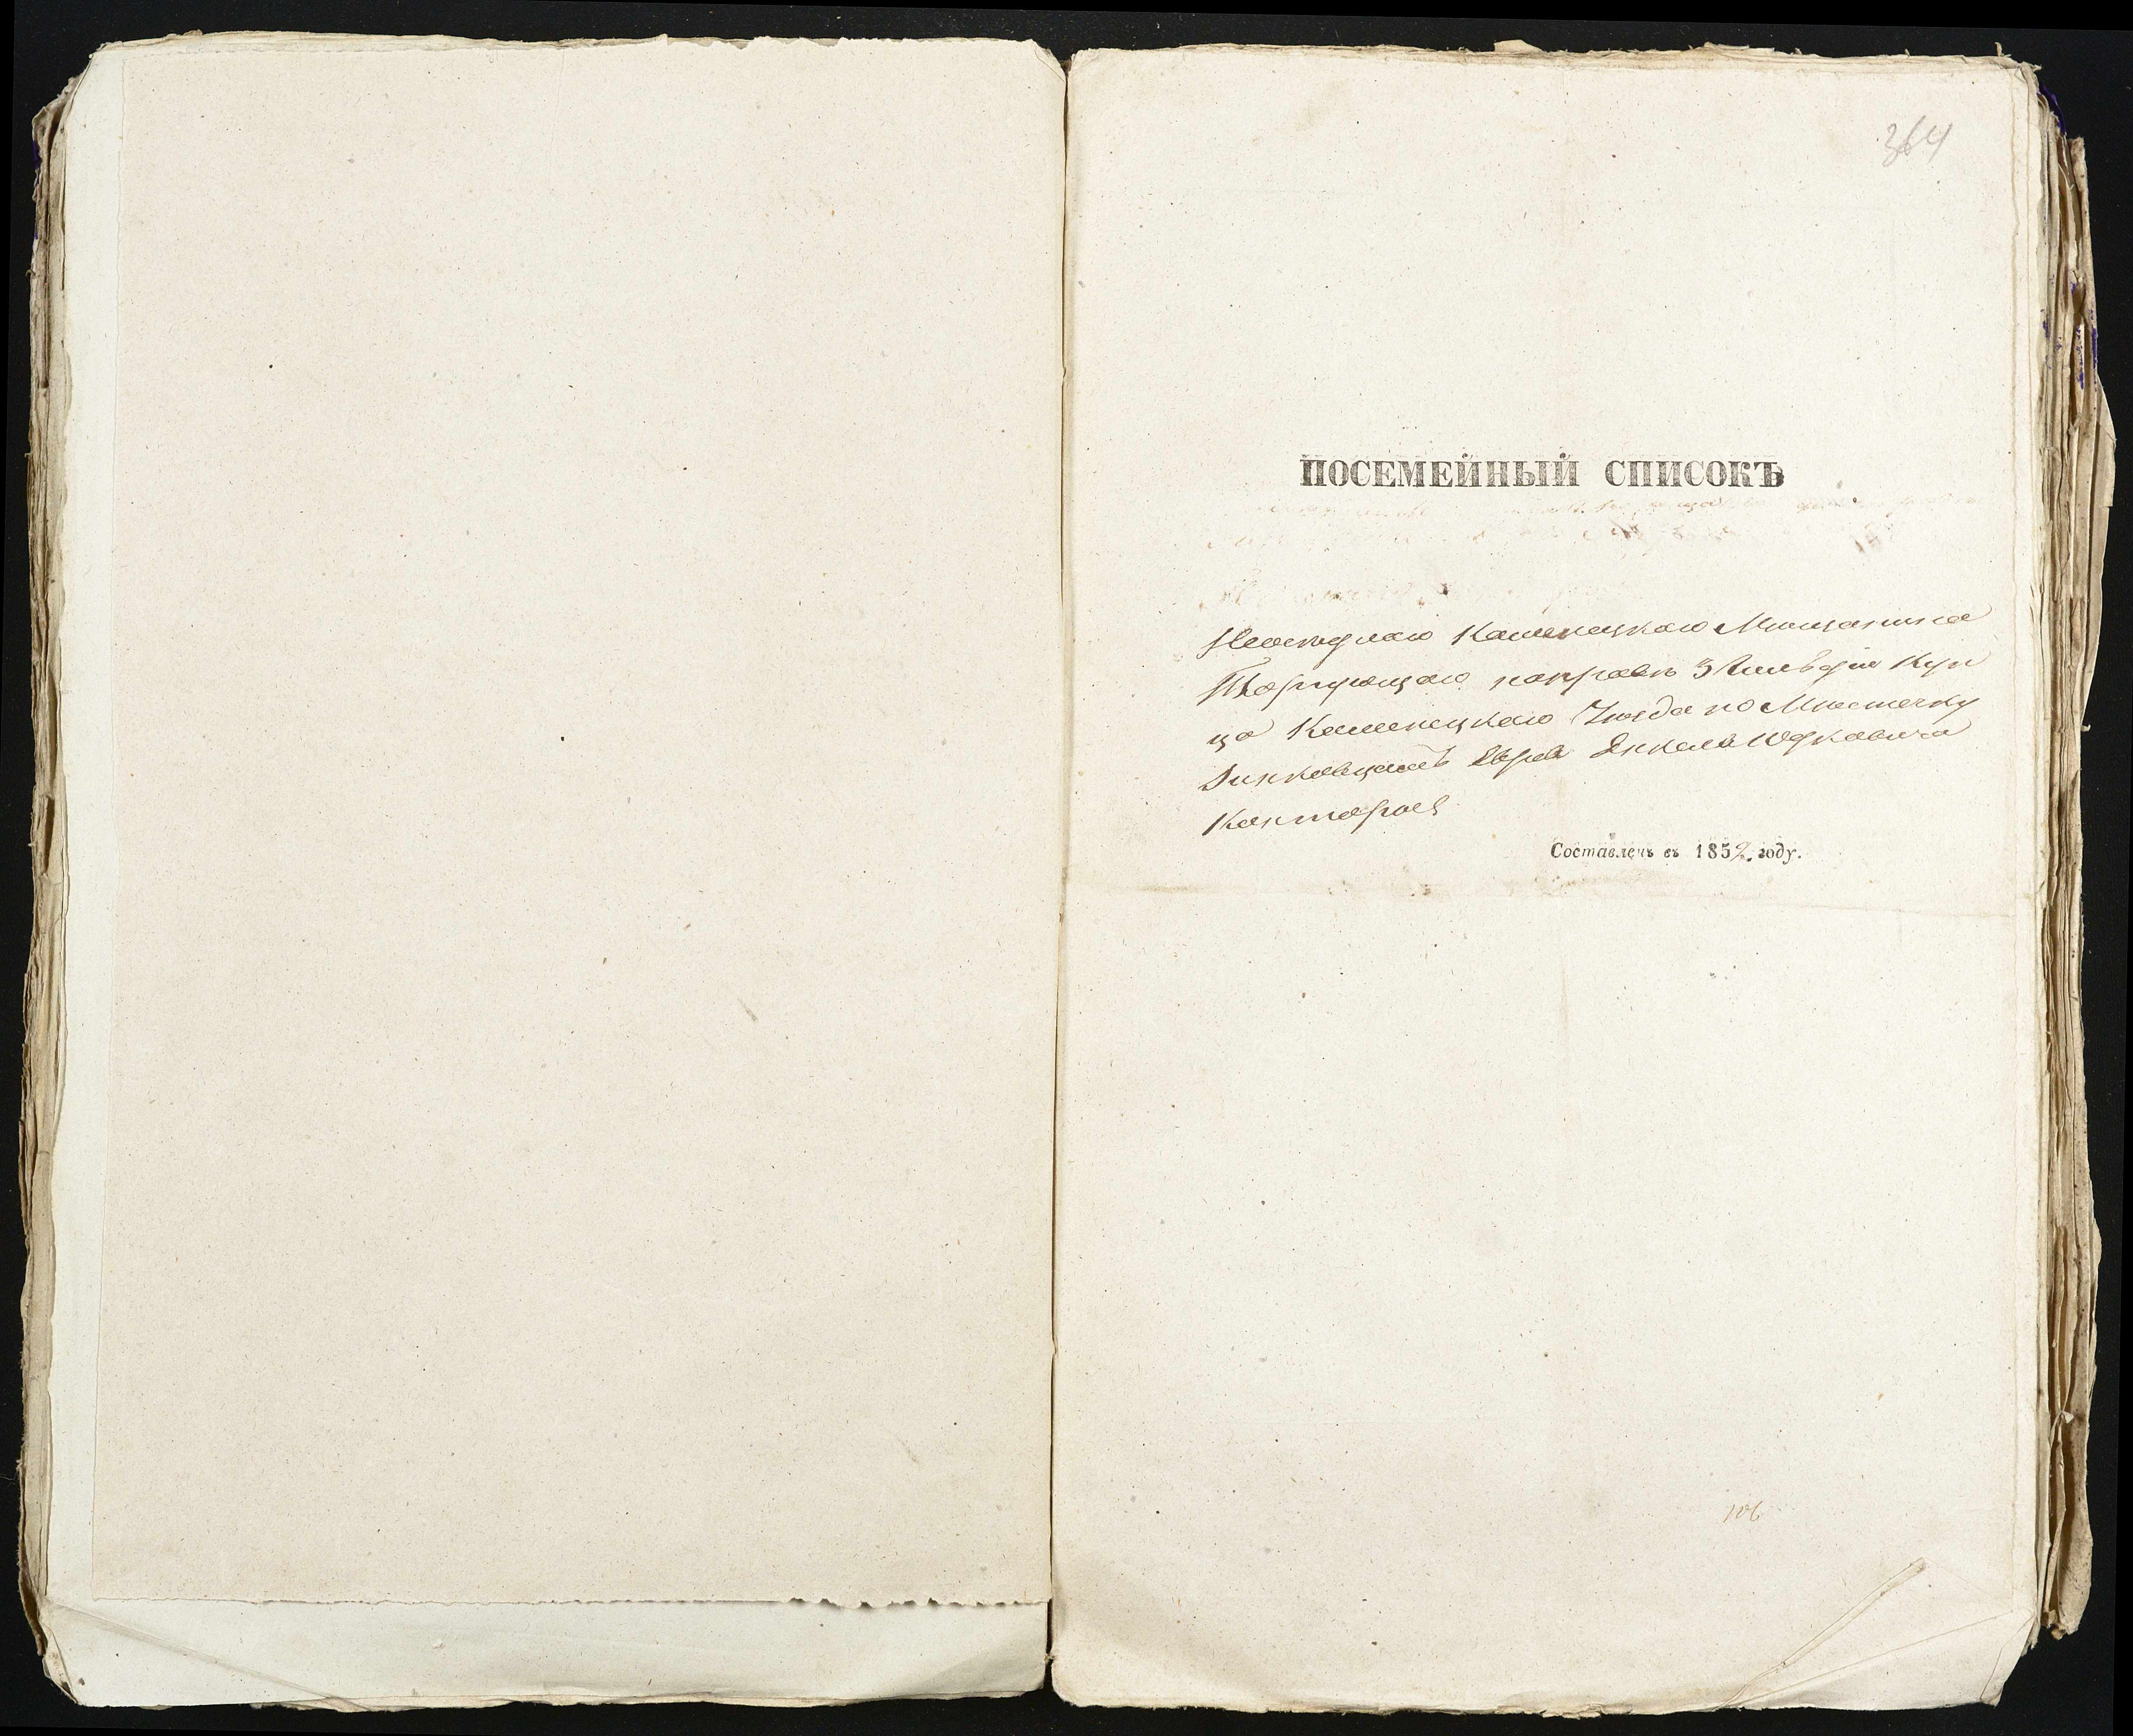 364
ПОСЕМЕЙНЫЙ СПИСОКЪ
Каменецкаго Мещанина
Торгующаго направѣ 3 Гильдіи Куп
ца Каменецкаго Уезда по Местечку
Еврея Янкеля Юдковича
Кантаров
Составленъ въ 1852 году.
106